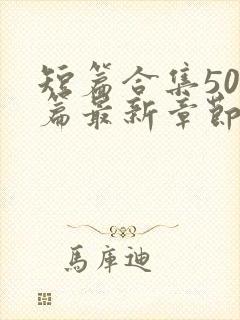 短篇合集50
篇最新章節
馬庫迪